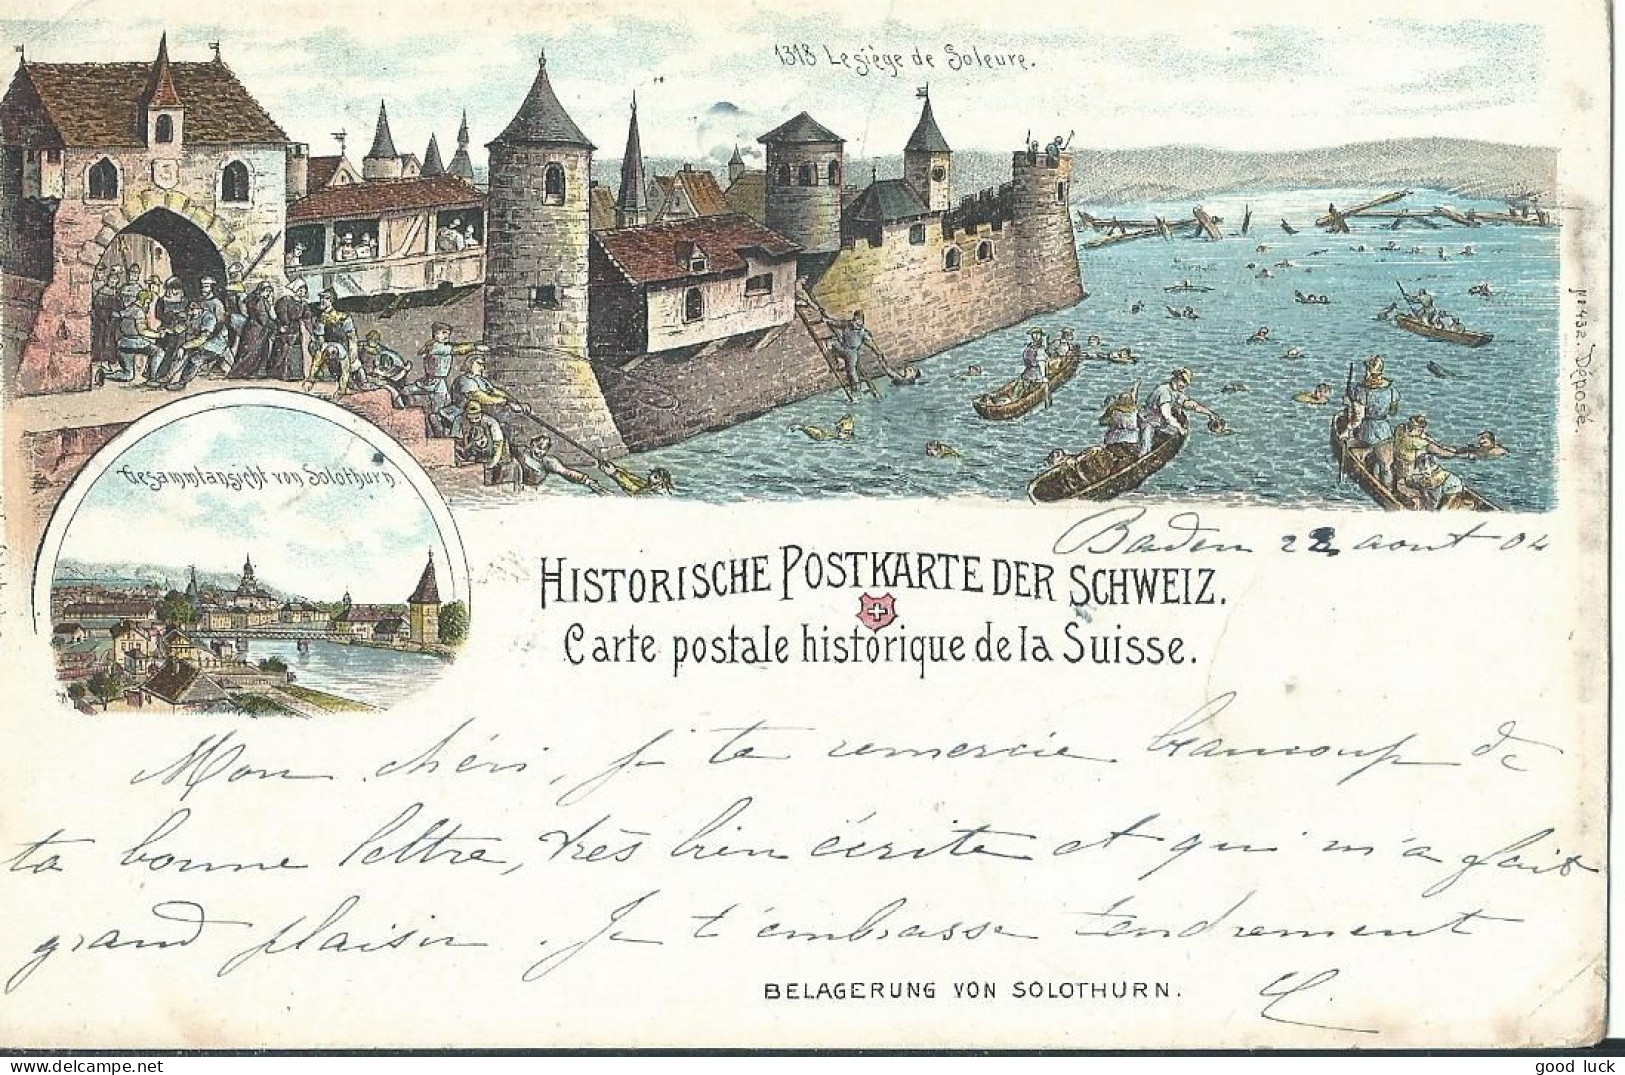 1318 Le siège de Soleure.
Gesammtansicht von Solothurn.
No 432 Déposé.
Baden 22 aout 04
HISTORISCHE POSTKARTE DER SCHWEIZ.
Carte postale historique de la Suisse.
Mon chéri, je te remercie beaucoup de
ta bonne lettre, très bien écrite et qui m'a fait
grand plaisir. Je t'embrasse tendrement
BELAGERUNG VON SOLOTHURN.
good luck